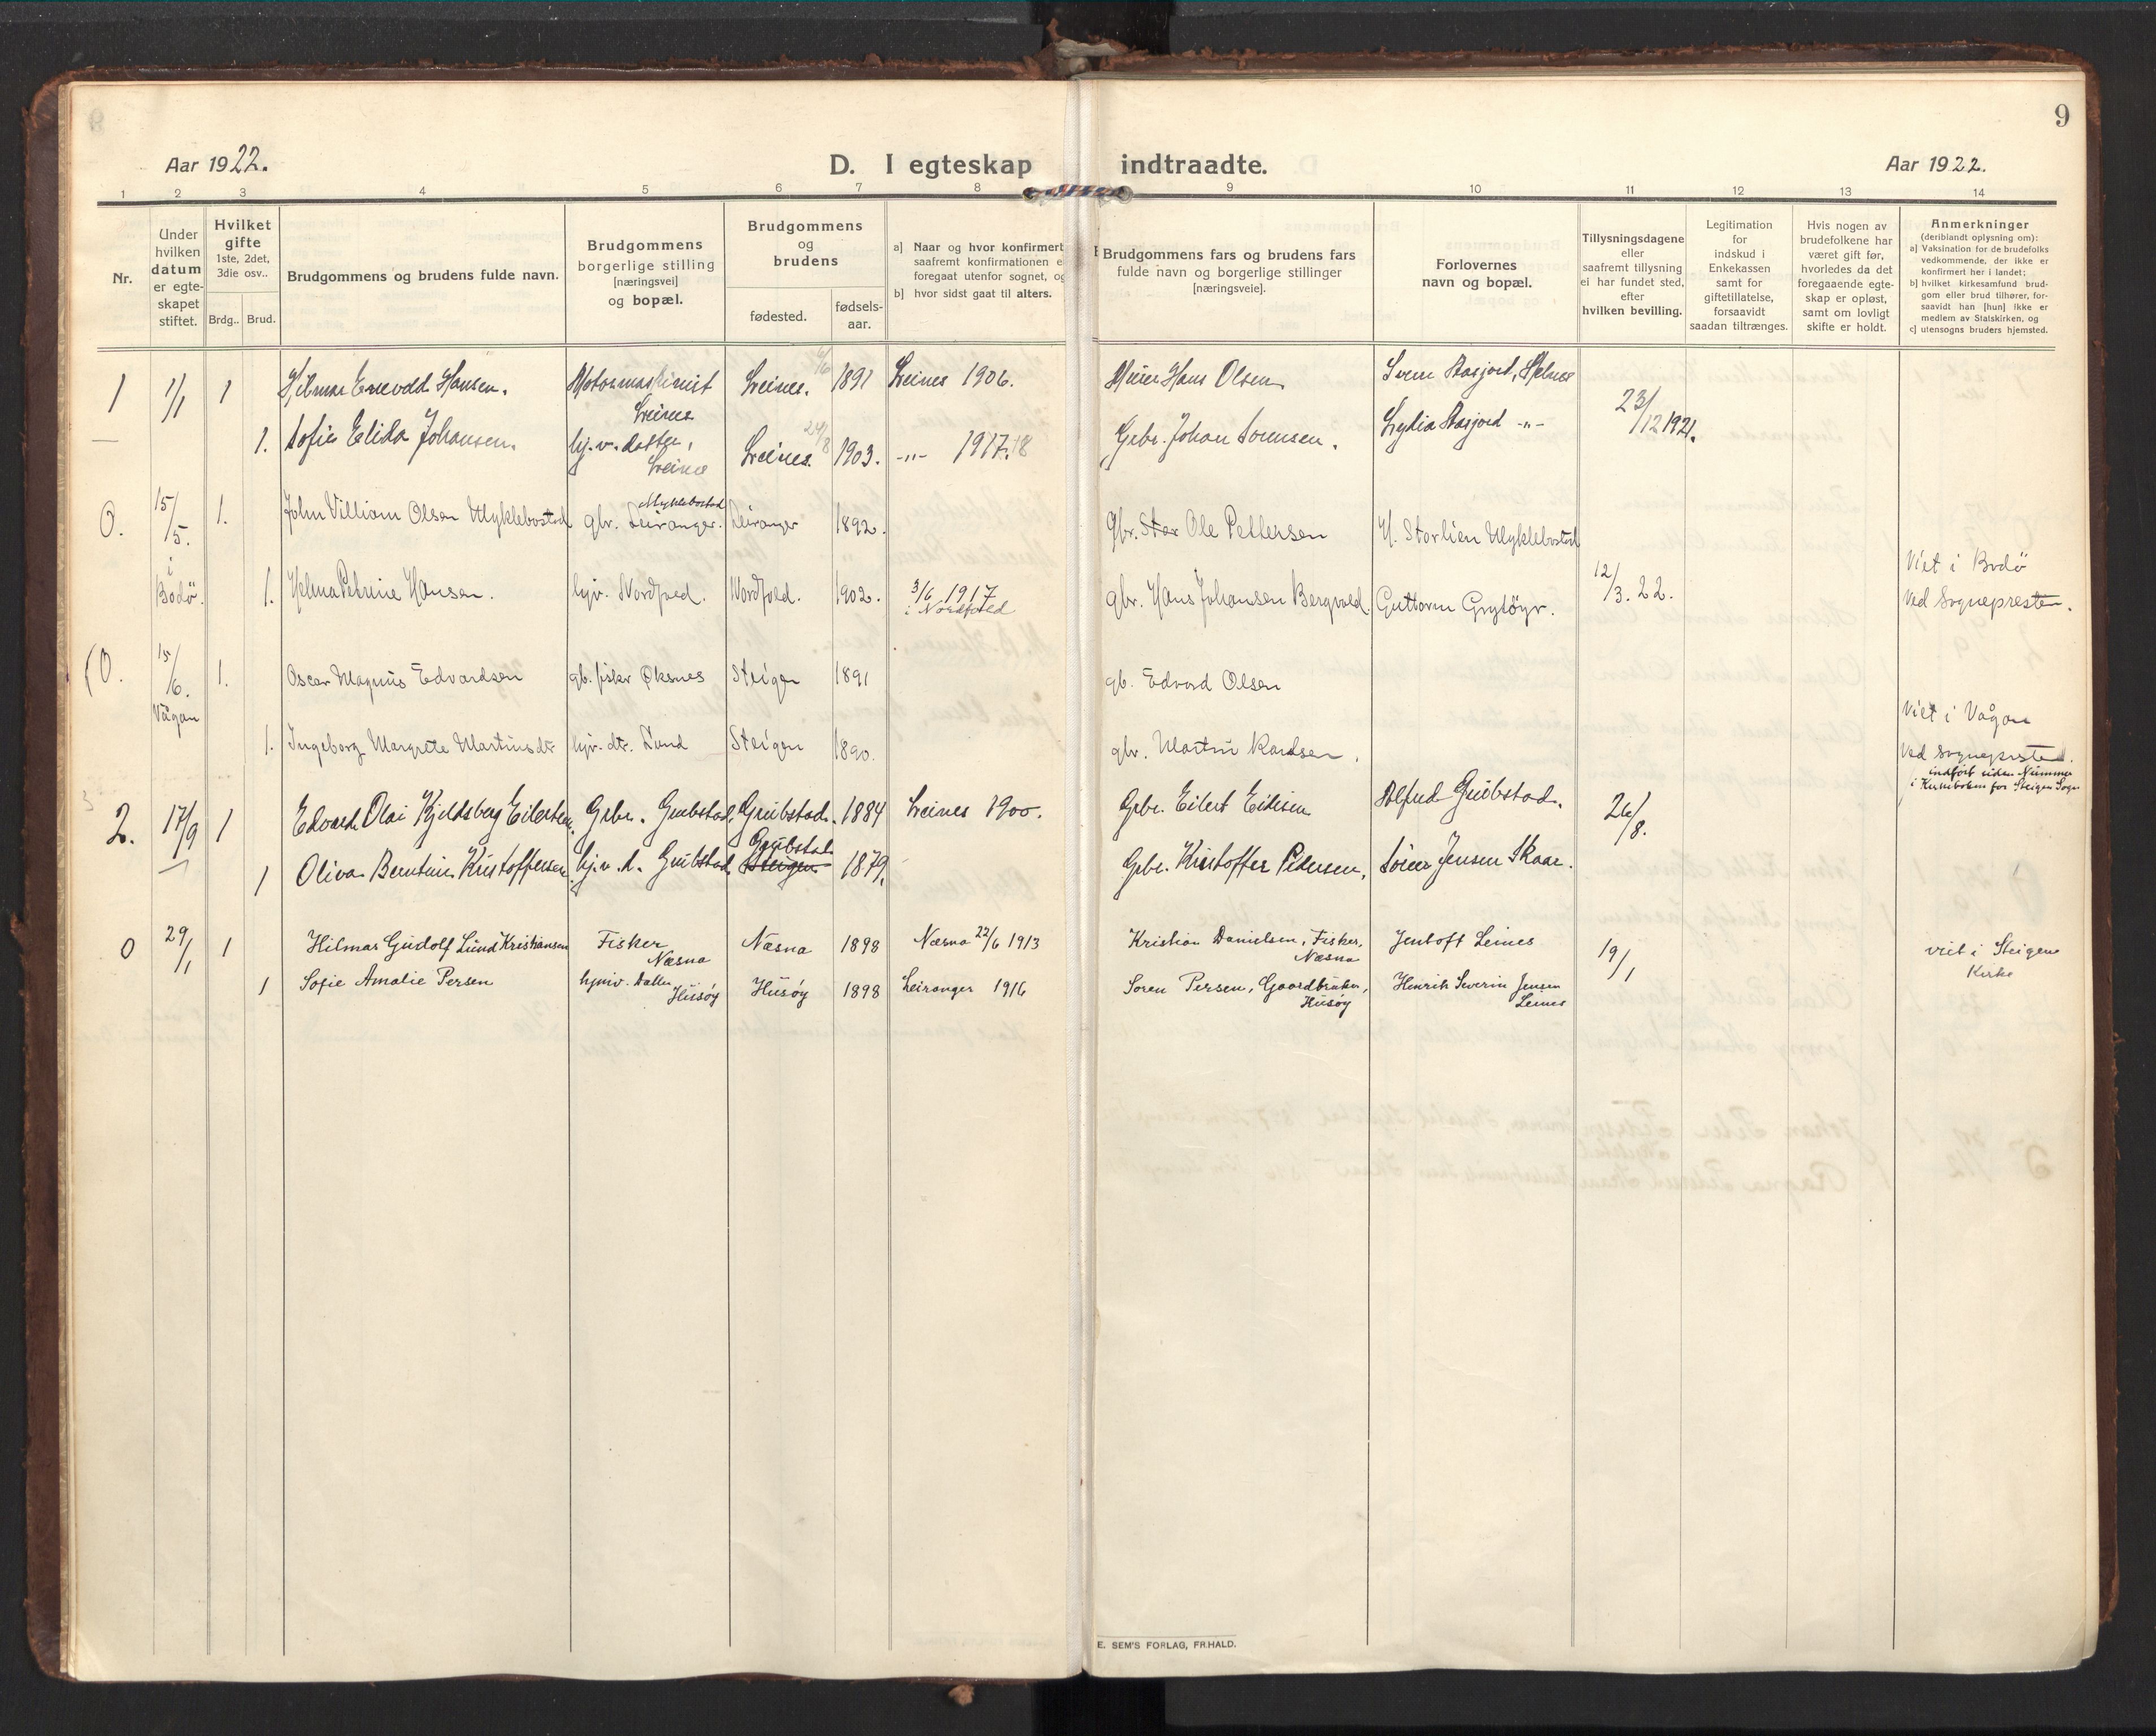 9
Aar 1922.
D. I egteskap indtraadte.
Aar 1922.
1 2 3 4 5 6 7 8 9 10 11 12 13 14
Nr.
Under hvilken datum er egte-skapet stiftet.
Hvilket gifte 1ste, 2det, 3die osv..
Brdg.. Brud.
Brudgommens og brudens fulde navn.
Brudgommens borgerlige stilling [næringsvei] og bopæl.
Brudgommens og brudens
fødested.
fødsels-aar.
a] Naar og hvor konfirmert
saafremt konfirmationen e
foregaat utenfor sognet, og
b] hvor sidst gaat til alters.
Brudgommens fars og brudens fars
fulde navn og borgerlige stillinger
[næringsveie].
Forlovernes
navn og bopæl.
Tillysningsdagene
eller
saafremt tillysning
ei har fundet sted,
efter
hvilken bevilling.
Legitimation
for
indskud i
Enkekassen
samt for
giftetillatelse,
forsaavidt
saadan tiltrænges.
Hvis nogen av
brudefolkene har
været gift før,
hvorledes da det
foregaaende egte-
skap er opløst,
samt om lovligt
skifte er holdt.
Anmerkninger
(deriblandt oplysning om):
a] Vaksination for de brudefolks
vedkommende, der ikke er
konfirmert her i landet;
b] hvilket kirkesamfund brud-
gom eller brud tilhører, for-
saavidt han [hun] ikke er
medlem av Statskirken, og
c] utensogns bruders hjemsted.
1 1/1 1 Hilmar Hansen. Motormaskinist Leines Leines. 1891 Leines 1906. Hans Olsen Aasjord, Helnes
1. Sofie Elida Johansen. hj.v. datter, Leines Leines. 24/8 1903. -"- 1917.18 Grbr. Johan Sørensen. Lydia Aasjord -"- 23/12 1921.
0. 15/5. 1. John Villiam Olsen Myklebostad gbr. Leiranger. Myklebostad Leiranger 1892. gbr. Ole Pettersen H. Storlien Myklebostad
i Bodø. 1. Helma Petrine Hansen. hjv. Nordfold. Nordfold. 1902. 3/6 1917 i Nordfold gbr. Hans Johansen Bergvold. Guttorm Grytøyr. 12/3. 22. Viet i Bodø
Ved Sognepresten.
(0. 15/6. 1. Oscar Magnus Edvardsen gb. fisker Øksnes Steigen 1891 gb. Edvard Olsen
Vågan 1. Ingeborg Margrete Martinsdtr hjv. dtr. Lund Steigen 1890. gbr. Martin Viet i Vågan
Ved Sognepresten.
indført uden Nummer
i Kirkeboken for Steigen Sogn
2. 17/9 1 Edvard Olai Kjeldsberg Eilertsen. Grbr. Grubstad, Grubstad. 1884 Leines 1900. Grbr. Eilert Alfred Grubstad. 26/8.
1 Oliva Berntine Kristoffersen hj.v.d. Grubstad Grubstad Steigen 1879. Grbr. Kristoffer Pedersen, Søren Jensen Skaar.
0 29/1 1 Hilmar Gudolf Lund Kristiansen Fisker Næsna Næsna 1898 Næsna 22/6 1913 Kristian Danielsen, Fisker, Næsna Jentoft Leines 19/1 viet i Steigens
Kirke
1 Sofie Amalie Persen hjmv. Datter Husøy Husøy 1898 Leiranger 1916 Søren Persen, Gaardbruker, Husøy Henrik Severin Jensen Leines
E. SEM'S FORLAG, FR.HALD.